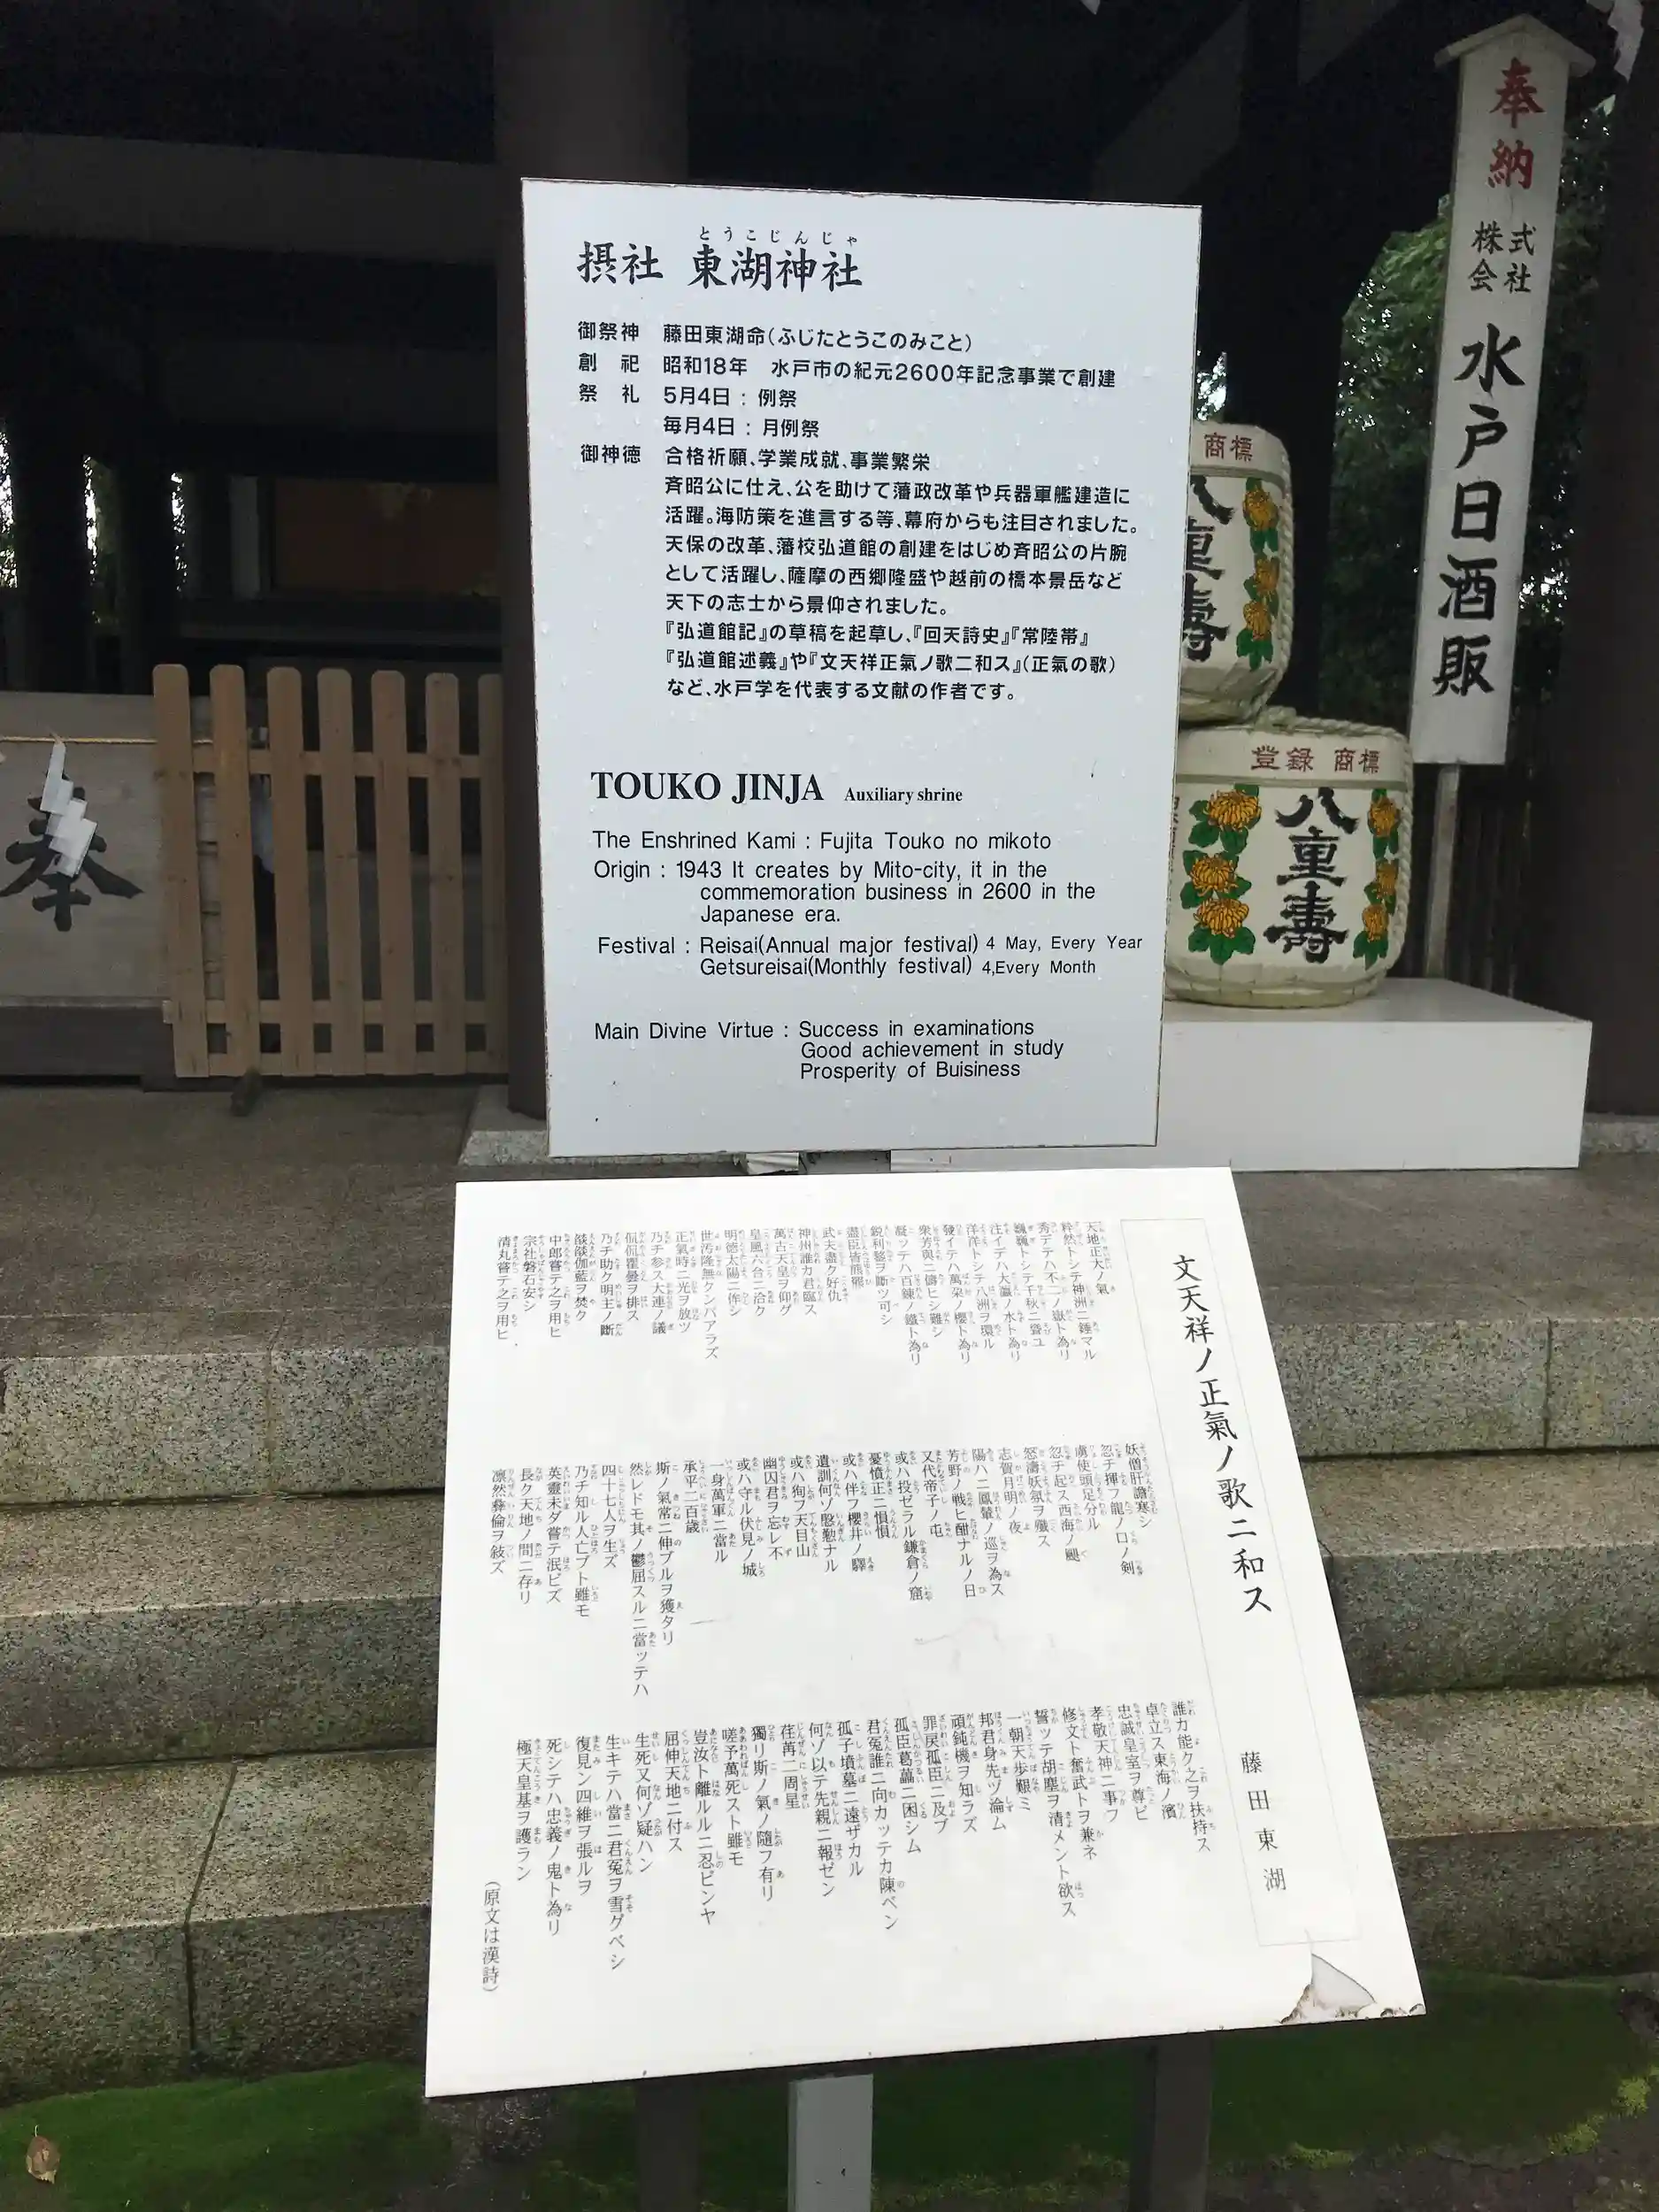 とうこじんじゃ
摂社 東湖神社
御祭神 藤田東湖命(ふじたとうこのみこと)
創祀 昭和18年 水戸市の紀元2600年記念事業で創建
祭礼 5月4日：例祭
毎月4日：月例祭
御神徳 合格祈願、学業成就、事業繁栄
斉昭公に仕え、公を助けて藩政改革や兵器軍艦建造に
活躍。海防策を進言する等、幕府からも注目されました。
天保の改革、藩校弘道館の創建をはじめ斉昭公の片腕
として活躍し、薩摩の西郷隆盛や越前の橋本景岳など
天下の志士から景仰されました。
『弘道館記』の草稿を起草し、『回天詩史』『常陸帯』
『弘道館述義』や『文天祥正氣ノ歌二和ス』(正氣の歌)
など、水戸学を代表する文献の作者です。
TOUKO JINJA Auxiliary shrine
The Enshrined Kami : Fujita Touko no mikoto
Origin : 1943 It creates by Mito-city, it in the
commemoration business in 2600 in the
Japanese era.
Festival : Reisai(Annual major festival) 4 May, Every Year
Getsureisai(Monthly festival) 4,Every Month
Main Divine Virtue : Success in examinations
Good achievement in study
Prosperity of Buisiness
文天祥ノ正氣ノ歌ニ和ス 藤田東湖
天地正大ノ氣
粹然トシテ神洲ニ鍾マル
秀デテハ不二ノ嶽ト為リ
巍巍トシテ千秋ニ聳ユ
注イデハ大瀛ノ水ト為リ
洋洋トシテ八洲ヲ環ル
發イテハ萬朶ノ櫻ト為リ
衆芳與ニ儔ヒシ難シ
凝ッテハ百錬ノ鐵ト為リ
鋭利鍪ヲ斷ツ可シ
藎臣皆熊羆
武夫盡ク好仇
神州誰カ君臨ス
萬古天皇ヲ仰グ
皇風六合ニ洽ク
明徳太陽ニ侔シ
世汚隆無クンバアラズ
正氣時ニ光ヲ放ツ
乃チ参ス大連ノ議
侃侃瞿曇ヲ排ス
乃チ助ク明主ノ斷
燄燄伽藍ヲ焚ク
中郎嘗テ之ヲ用ヒ
宗社磐石安シ
清丸嘗テ之ヲ用ヒ
妖僧肝膽寒シ
忽チ揮フ龍ノ口ノ剣
虜使頭足分ル
忽チ起ス西海ノ颶
怒濤妖氛ヲ殲ス
志賀月明ノ夜
陽ハニ鳳輦ノ巡ヲ為ス
芳野ノ戦ヒ酣ナルノ日
又代帝子ノ屯
或ハ投ゼラル鎌倉ノ窟
憂憤正ニ愪愪
或ハ伴フ櫻井ノ驛
遺訓何ゾ慇懃ナル
或ハ狥フ天目山
幽囚君ヲ忘レ不
或ハ守ル伏見ノ城
一身萬軍ニ當ル
承平二百歳
斯ノ氣常ニ伸ブルヲ獲タリ
然レドモ其ノ鬱屈スルニ當ッテハ
四十七人ヲ生ズ
乃チ知ル人亡ブト雖モ
英靈未ダ嘗テ泯ビズ
長ク天地ノ間ニ存リ
凛然彝倫ヲ敍ズ
誰カ能ク之ヲ扶持ス
卓立ス東海ノ濱
忠誠皇室ヲ尊ビ
孝敬天神ニ事フ
修文ト奮武トヲ兼ネ
誓ッテ胡塵ヲ清メント欲ス
一朝天歩艱ミ
邦君身先ヅ淪ム
頑鈍機ヲ知ラズ
罪戻孤臣ニ及ブ
孤臣葛藟ニ困シム
君冤誰ニ向カッテカ陳ベン
孤子墳墓ニ遠ザカル
何ゾ以テ先親ニ報ゼン
荏苒二周星
獨リ斯ノ氣ノ隨フ有リ
嗟予萬死スト雖モ
豈汝ト離ルルニ忍ビンヤ
屈伸天地ニ付ス
生死又何ゾ疑ハン
生キテハ當ニ君冤ヲ雪グベシ
復見ン四維ヲ張ルヲ
死シテハ忠義ノ鬼ト為リ
極天皇基ヲ護ラン
(原文は漢詩)
奉納
株式会社
水戸日酒販
商標
八重壽
登録 商標
八重壽
奉